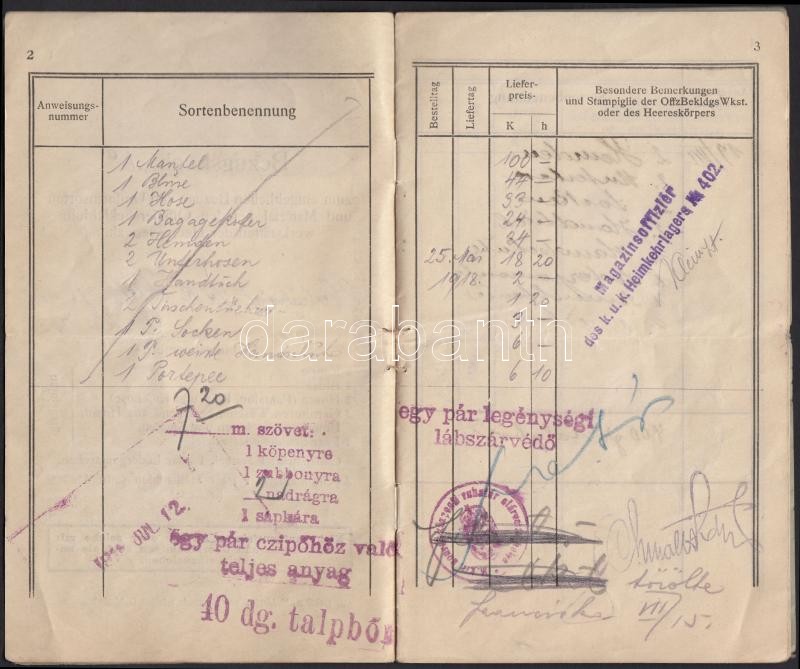 2
Anweisungs-
nummer
Sortenbenennung
1 Mantel
1 Bluse
1 Hose
1 Bagagekoffer
2 Hemden
2 Unterhosen
1 Handtuch
2 Taschentücher
1 P. Socken
1 P. weisse
1 Portepee
7 20
m. szövet:
1 köpenyre
1 zubbonyra
2 nadrágra
1 sapkára
JUL. 12.
egy pár czipőhöz való
teljes anyag
10 dg. talpbőr
3
Bestelltag
Liefertag
Liefer-
preis-
K h
Besondere Bemerkungen
und Stampiglie der OffzBekldgsWkst.
oder des Heereskörpers
100 —
44 —
93 —
24 —
24 —
25. Mai 18 20
1918. 2 —
1 20
9 —
6 —
6 10
Magazinsoffizier
des k. u. k. Heimkehrlagers № 402.
egy pár legénységi
lábszárvédő
törölte
VII/15.
darabanth